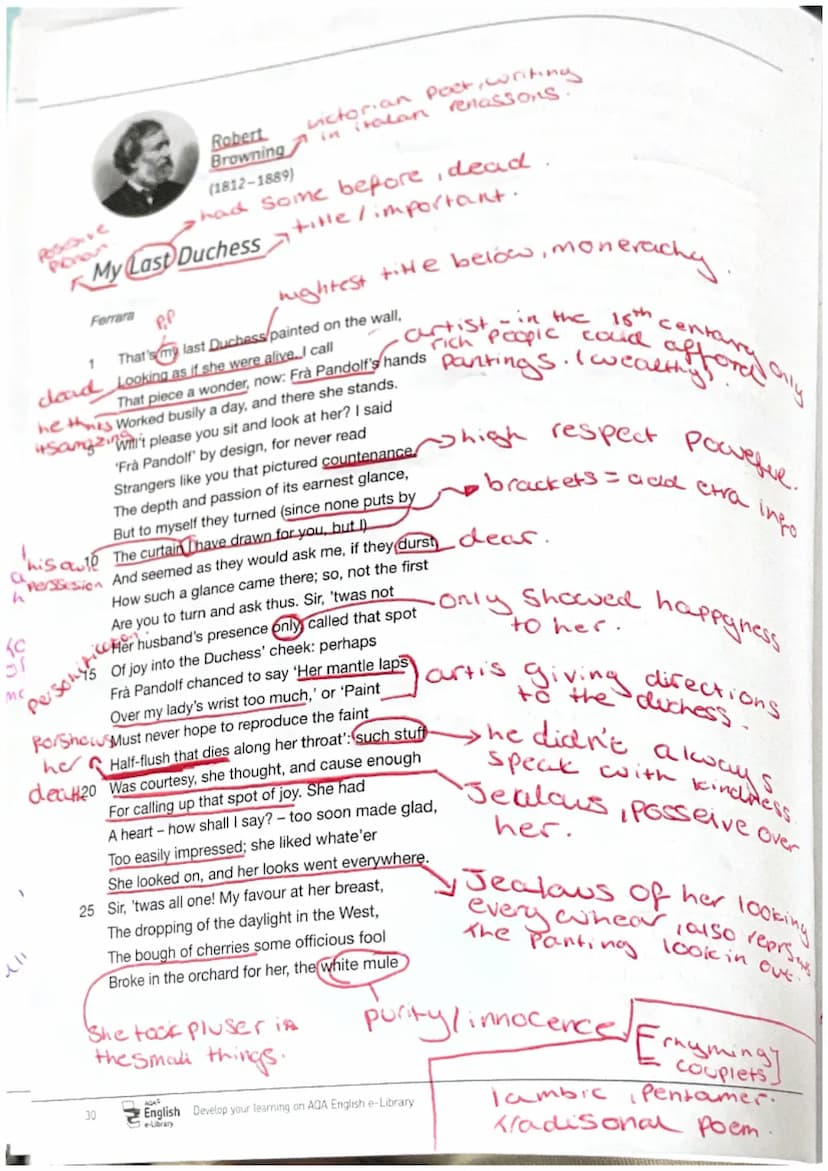 victorian poet, writing
in italan renassons.
Robert
Browning
(1812–1889)
had some before, dead.
title / important.
My Last Duchess
hughtest title below, monerachy.
Ferrara
P.P
1 That's my last Duchess painted on the wall,
Looking as if she were alive. I call
That piece a wonder, now: Frà Pandolf's hands
Worked busily a day, and there she stands.
5 Will't please you sit and look at her? I said
'Frà Pandolf' by design, for never read
Strangers like you that pictured countenance,
The depth and passion of its earnest glance,
But to myself they turned (since none puts by
10 The curtain I have drawn for you, but I)
And seemed as they would ask me, if they durst,
How such a glance came there; so, not the first
Are you to turn and ask thus. Sir, 'twas not
Her husband's presence only, called that spot
15 Of joy into the Duchess' cheek: perhaps
Frà Pandolf chanced to say 'Her mantle laps
Over my lady's wrist too much,' or 'Paint
Must never hope to reproduce the faint
Half-flush that dies along her throat': such stuff
20 Was courtesy, she thought, and cause enough
For calling up that spot of joy. She had
A heart – how shall I say? – too soon made glad,
Too easily impressed; she liked whate'er
She looked on, and her looks went everywhere.
25 Sir, 'twas all one! My favour at her breast,
The dropping of the daylight in the West,
The bough of cherries some officious fool
Broke in the orchard for her, the white mule
artist - in the 16th centarary only
rich people could afford
Pantings. (wealthy)
dead
he thinks
itsamazing
high respect powefue.
brackets = add extra info
his own
perssesion
dear.
only showed happyness
to her.
artis giving directions
to the duchess.
Forshows
her
death
he didn't always
speak with kindness
Jealous, posseive over
her.
Jealaus of her looking
every whear, also reprsents
the Panting look in out.
She took pluser in
the small things.
purity / innocence
[rhyming
couplets]
Iambic, pentamer.
tradisonal poem.
30
AQA
English
e-Library
Develop your learning on AQA English e-Library